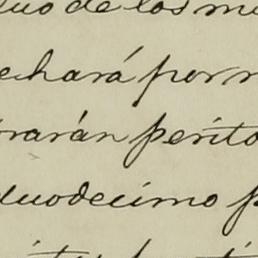 uo de los m
echará por m
rarán perito
duodecimo p